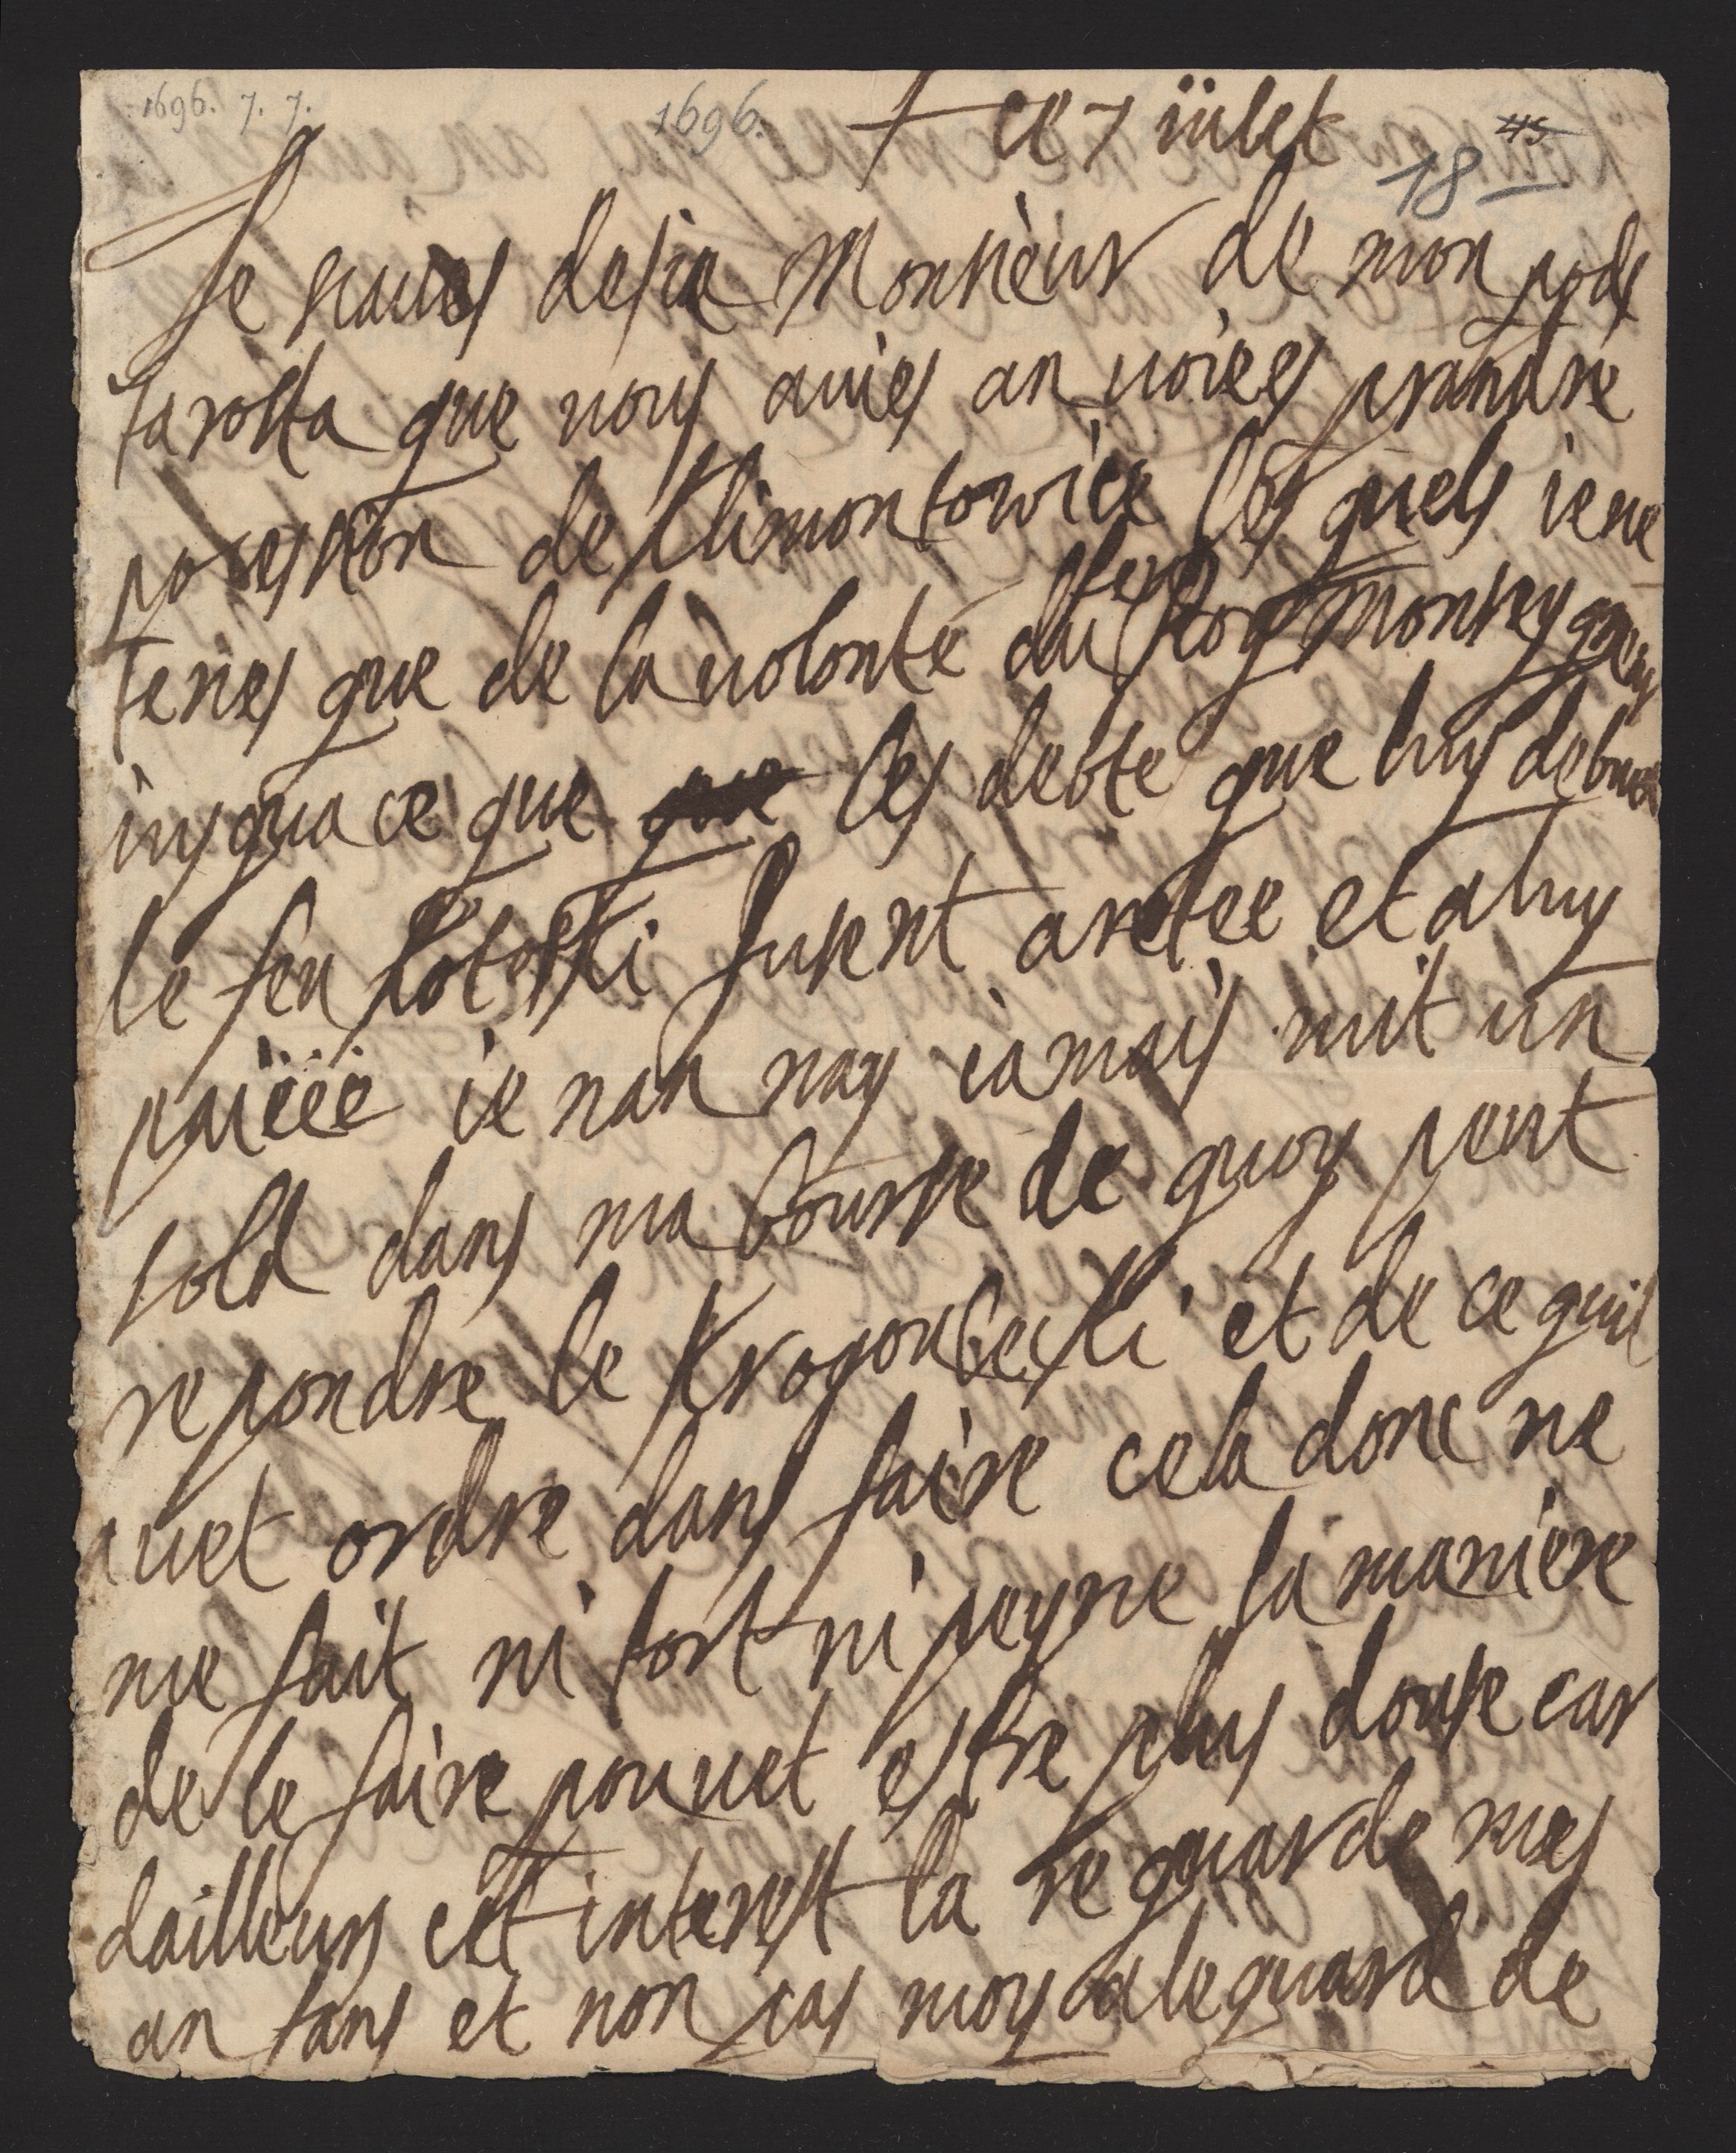 1696. 7. 7.
1696.
ce 7 iület
45
18
Je scaues desia Monsieur de mon pods
tarosta que vous aviés an voiees prandre
posession de Klimontowice les quels ie ne
feus
teries que de la volonté du Roy Monseygneur
iusqua ce que que les debte que luy debuoit
le feu Pototski furent aretee et a luy
paiëëe ie nan nay iamais mit un
sold dans ma bourse de quoy peut
repondre le Krogoulecski et de ce quil
avet ordre dans faire cela donc ne
me fait ni tort ni peyne la maniere
de le faire pouvet estre plus douse car
dailleurs cet interest la reguarde mes
an fans et non pas moy a leguard de